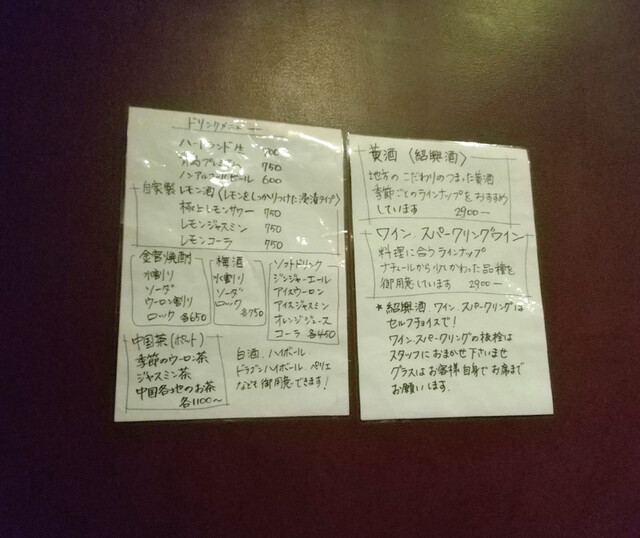 ドリンクメニュー
ハートランド生 700
プレミアム 750
ノンアルコールビール 600
自家製 レモン酒(レモンをしっかりつけた浸漬タイプ)
極上レモンサワー 750
レモンジャスミン 750
レモンコーラ 750
金宮焼酎
水割り
ソーダ
ウーロン割り
ロック 各650
梅酒
水割り
ソーダ
ロック
各750
ソフトドリンク
ジンジャーエール
アイスウーロン
アイスジャスミン
オレンジジュース
コーラ 各450
中国茶(ポット)
季節のウーロン茶
ジャスミン茶
中国各地のお茶
各1100〜
白酒.ハイボール.
ドラゴンハイボール.ペリエ
なども御用意できます!
黄酒〈紹興酒〉
地方のこだわりのつまった黄酒
季節ごとのラインナップをおすすめ
しています 2900ー
ワイン.スパークリングワイン
料理に合うラインナップ
ナチュールから少しかわった品種を
御用意しています 2900ー
*紹興酒.ワイン.スパークリングは
セルフチョイスで!
ワイン.スパークリングの抜栓は
スタッフにおまかせ下さいませ
グラスはお客様自身でお席まで
お願いします.